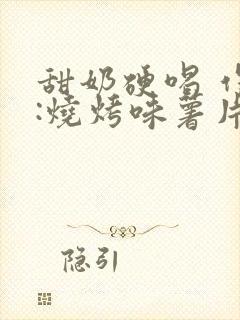 甜奶硬唱
:燒烤味薯片
隐引